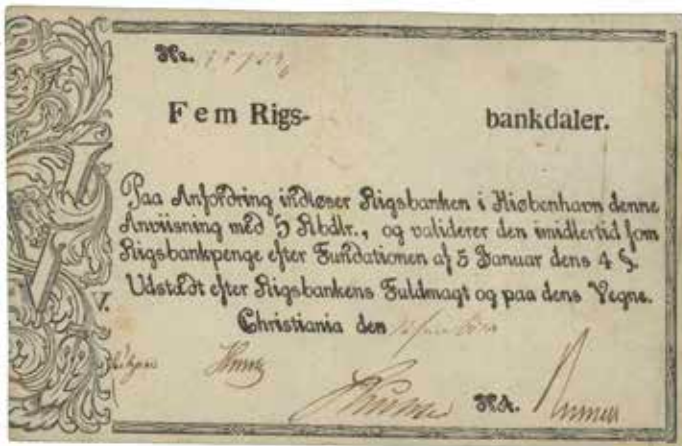 No.
Fem Rigs- bankdaler.
Paa Anfordring indløser Rigsbanken i Kiøbenhavn denne
Anviisning med 5 Rbdlr., og validerer den imidlertid som
Rigsbankpenge efter Fundationen af 5 Januar dens 4 §.
Udstædt efter Rigsbankens Fuldmagt og paa dens Vegne.
V.
Christiania den